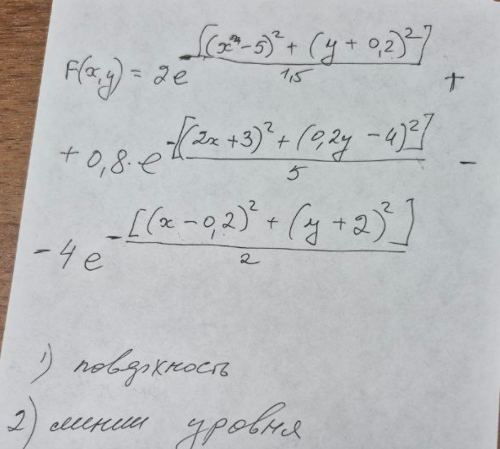 F(x,y) = 2e^{-\frac{[(x^2-5)^2+(y+0,2)^2]}{1,5}} +
+ 0,8 \cdot e^{-\frac{[(2x+3)^2+(0,2y-4)^2]}{5}} -
- 4e^{-\frac{[(x-0,2)^2+(y+2)^2]}{2}}
1) поверхность
2) линии уровня